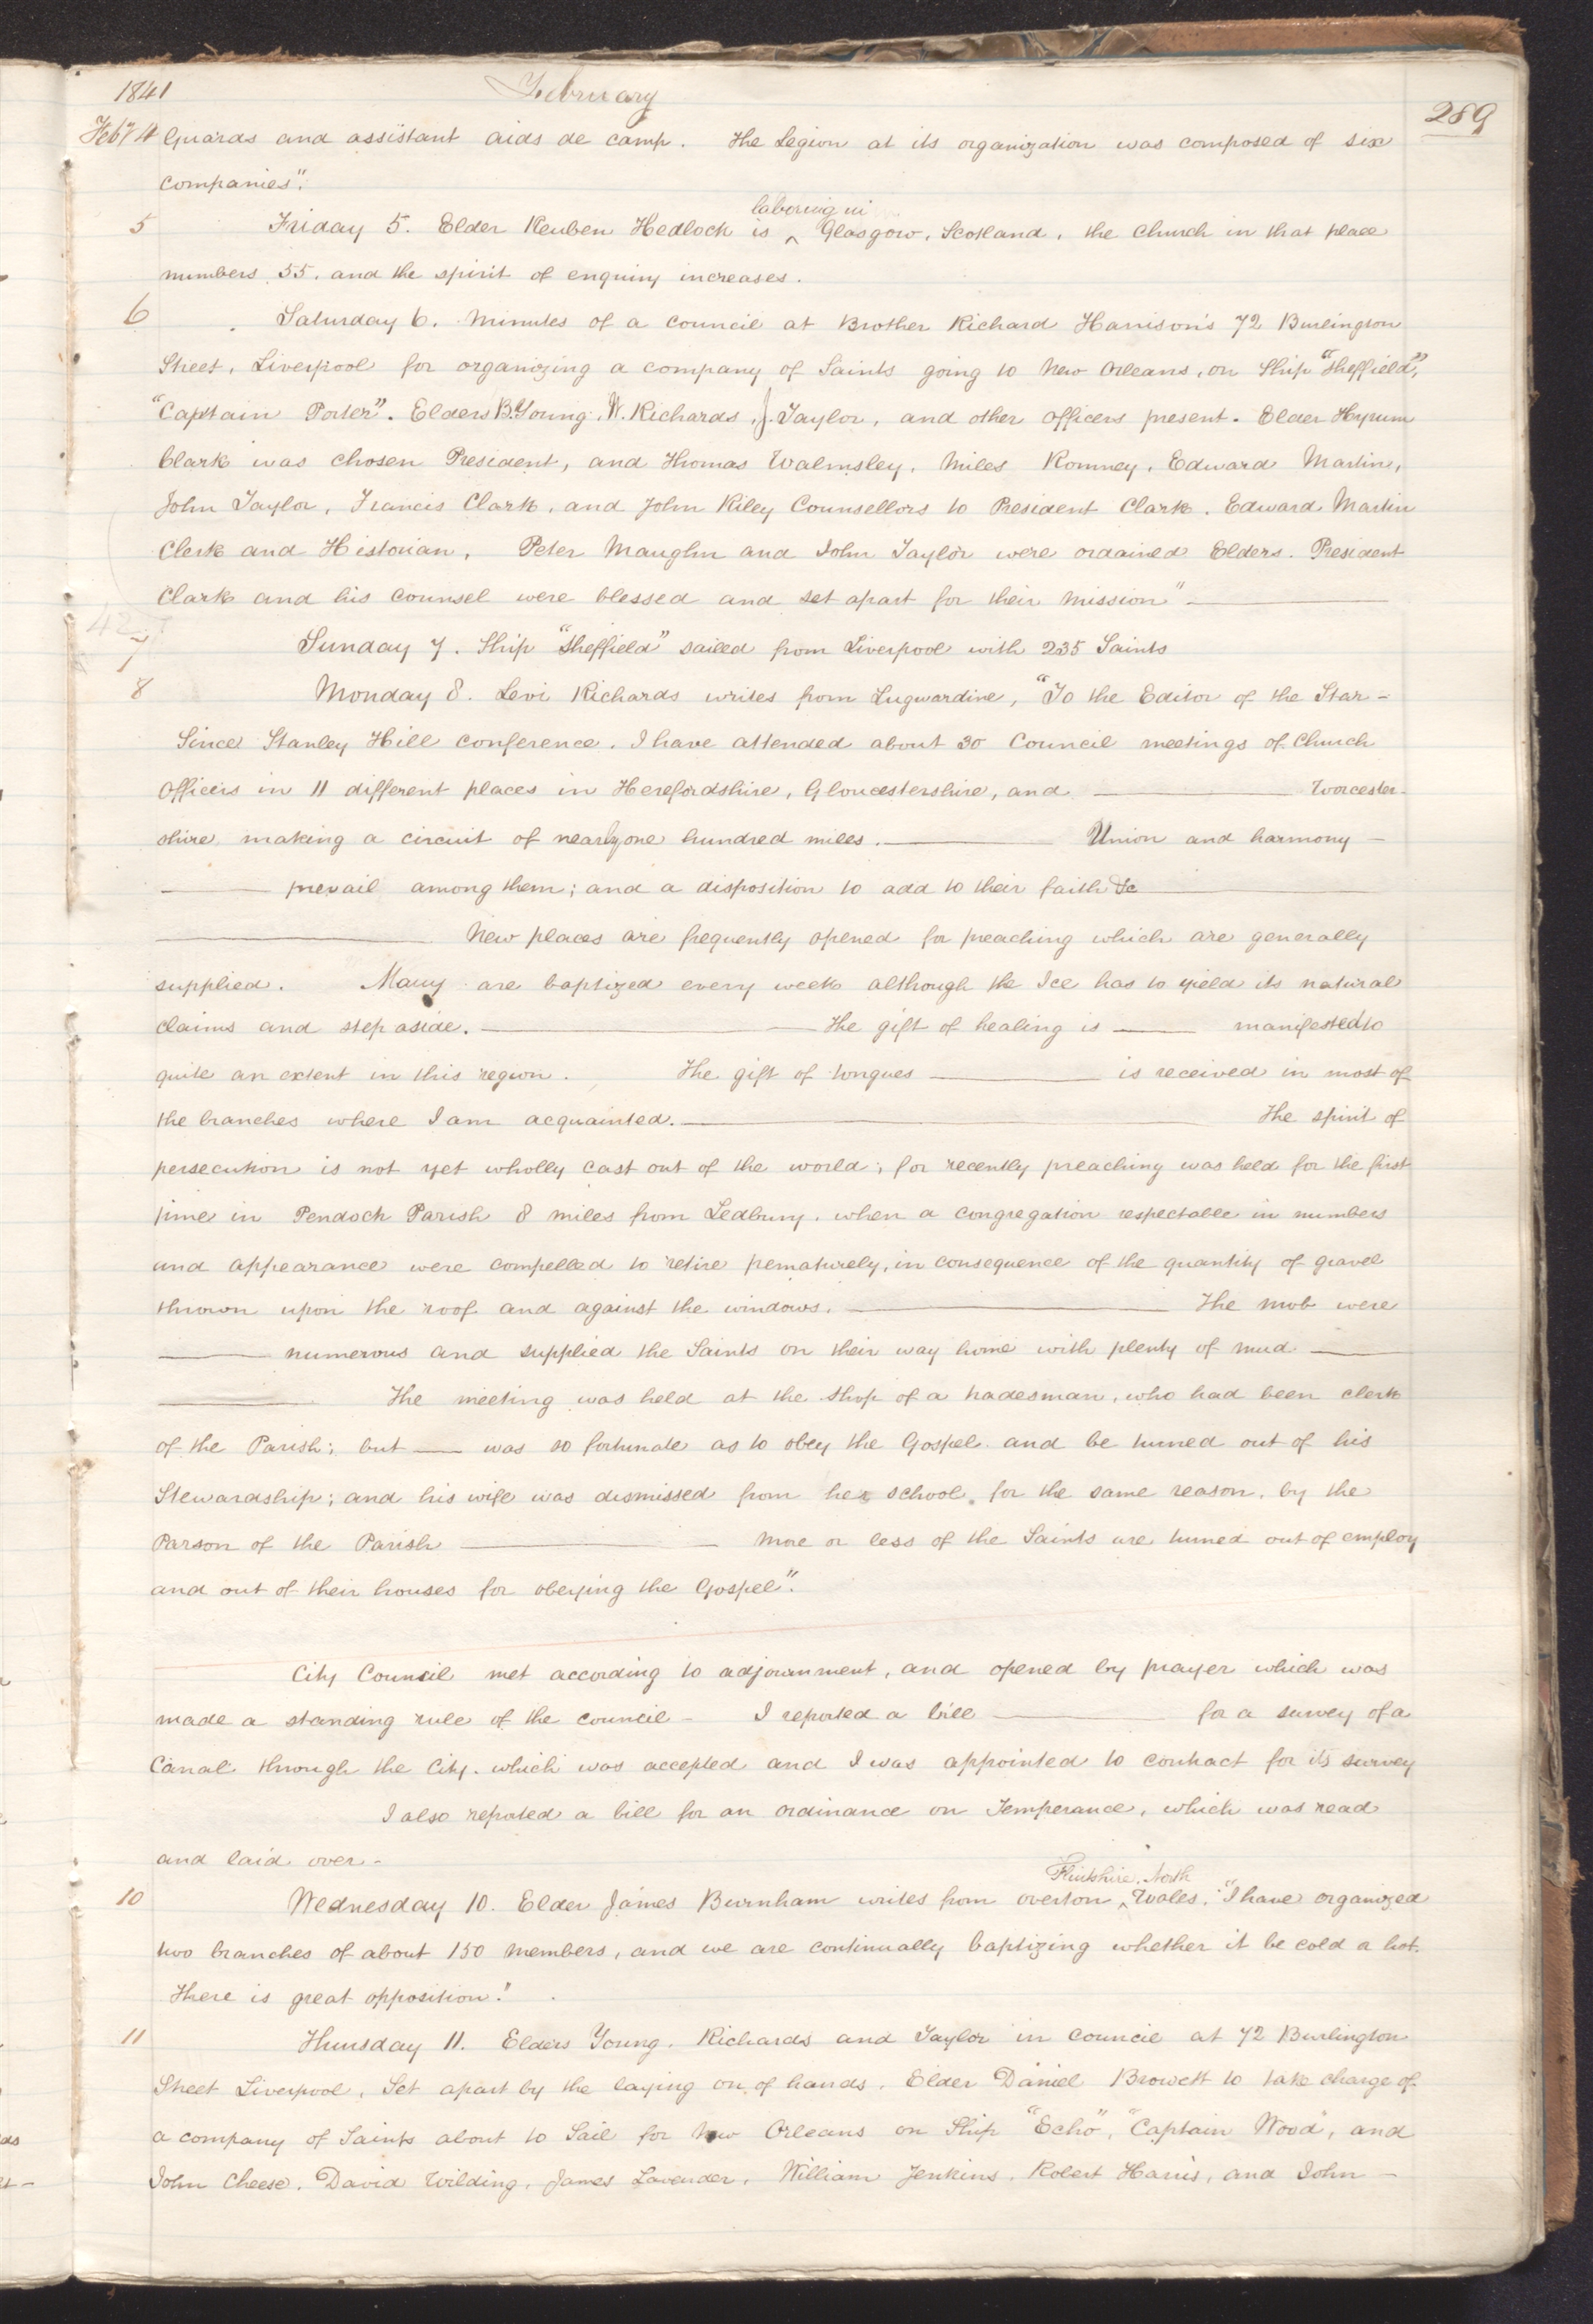 1841 February
289
Feby 4 Guards and assistant aids de camp. The Legion at its organization was composed of six
companies".
laboring in
5 Friday 5. Elder Reuben Hedlock is ^ Glasgow, Scotland, the Church in that place
numbers 55, and the spirit of enquiry increases.
6 Saturday 6. Minutes of a council at Brother Richard Harrison's 72 Burlington
Street, Liverpool for organizing a company of Saints going to New Orleans, on Ship "Sheffield",
"Captain Porter". Elders B. Young, W. Richards, J. Taylor, and other officers present. Elder Hyrum
Clark was chosen President, and Thomas Walmsley, Miles Romney, Edward Martin,
John Taylor, Francis Clark, and John Riley Counsellors to President Clark. Edward Martin
Clerk and Historian, Peter Maughn and John Taylor were ordained Elders. President
Clark and his Counsel were blessed and set apart for their mission" —
7 Sunday 7. Ship "Sheffield" sailed from Liverpool with 235 Saints
8 Monday 8. Levi Richards writes from Lugwardine, "To the Editor of the Star -
Since Stanley Hill conference, I have attended about 30 Council meetings of Church
Officers in 11 different places in Herefordshire, Gloucestershire, and — Worcester-
shire, making a circuit of nearly one hundred miles. — Union and harmony —
— prevail among them; and a disposition to add to their faith &c —
— New places are frequently opened for preaching which are generally
supplied. Many are baptized every week although the Ice has to yield its natural
claims and step aside. — The gift of healing is — manifested to
quite an extent in this region. The gift of tongues — is received in most of
the branches where I am acquainted. — The spirit of
persecution is not yet wholly cast out of the world; for recently preaching was held for the first
time in Pendock Parish 8 miles from Ledbury, when a congregation respectable in numbers
and appearance were compelled to retire pematurely, in consequence of the quantity of gravel
thrown upon the roof and against the windows. — The mob were
— numerous and supplied the Saints on their way home with plenty of mud —
— The meeting was held at the shop of a tradesman, who had been clerk
of the Parish; but — was so fortunate as to obey the Gospel and be turned out of his
Stewardship; and his wife was dismissed from her school, for the same reason, by the
Parson of the Parish — More or less of the Saints are turned out of employ
and out of their houses for obeying the Gospel".
City Council met according to adjournment, and opened by prayer which was
made a standing rule of the council - I reported a bill — for a survey of a
Canal through the City, which was accepted and I was appointed to contract for its survey
I also reported a bill for an ordinance on Temperance, which was read
and laid over -
Flintshire, North
10 Wednesday 10. Elder James Burnham writes from overton ^ Wales, "I have organized
two branches of about 150 members, and we are continually baptizing whether it be cold or hot.
There is great opposition."
11 Thursday 11. Elders Young, Richards and Taylor in council at 72 Burlington
Street Liverpool, Set apart by the laying on of hands, Elder Daniel Browett to take charge of
a company of Saints about to Sail for New Orleans on Ship "Echo", "Captain Wood", and
John Cheese, David Wilding, James Lavender, William Jenkins, Robert Harris, and John -